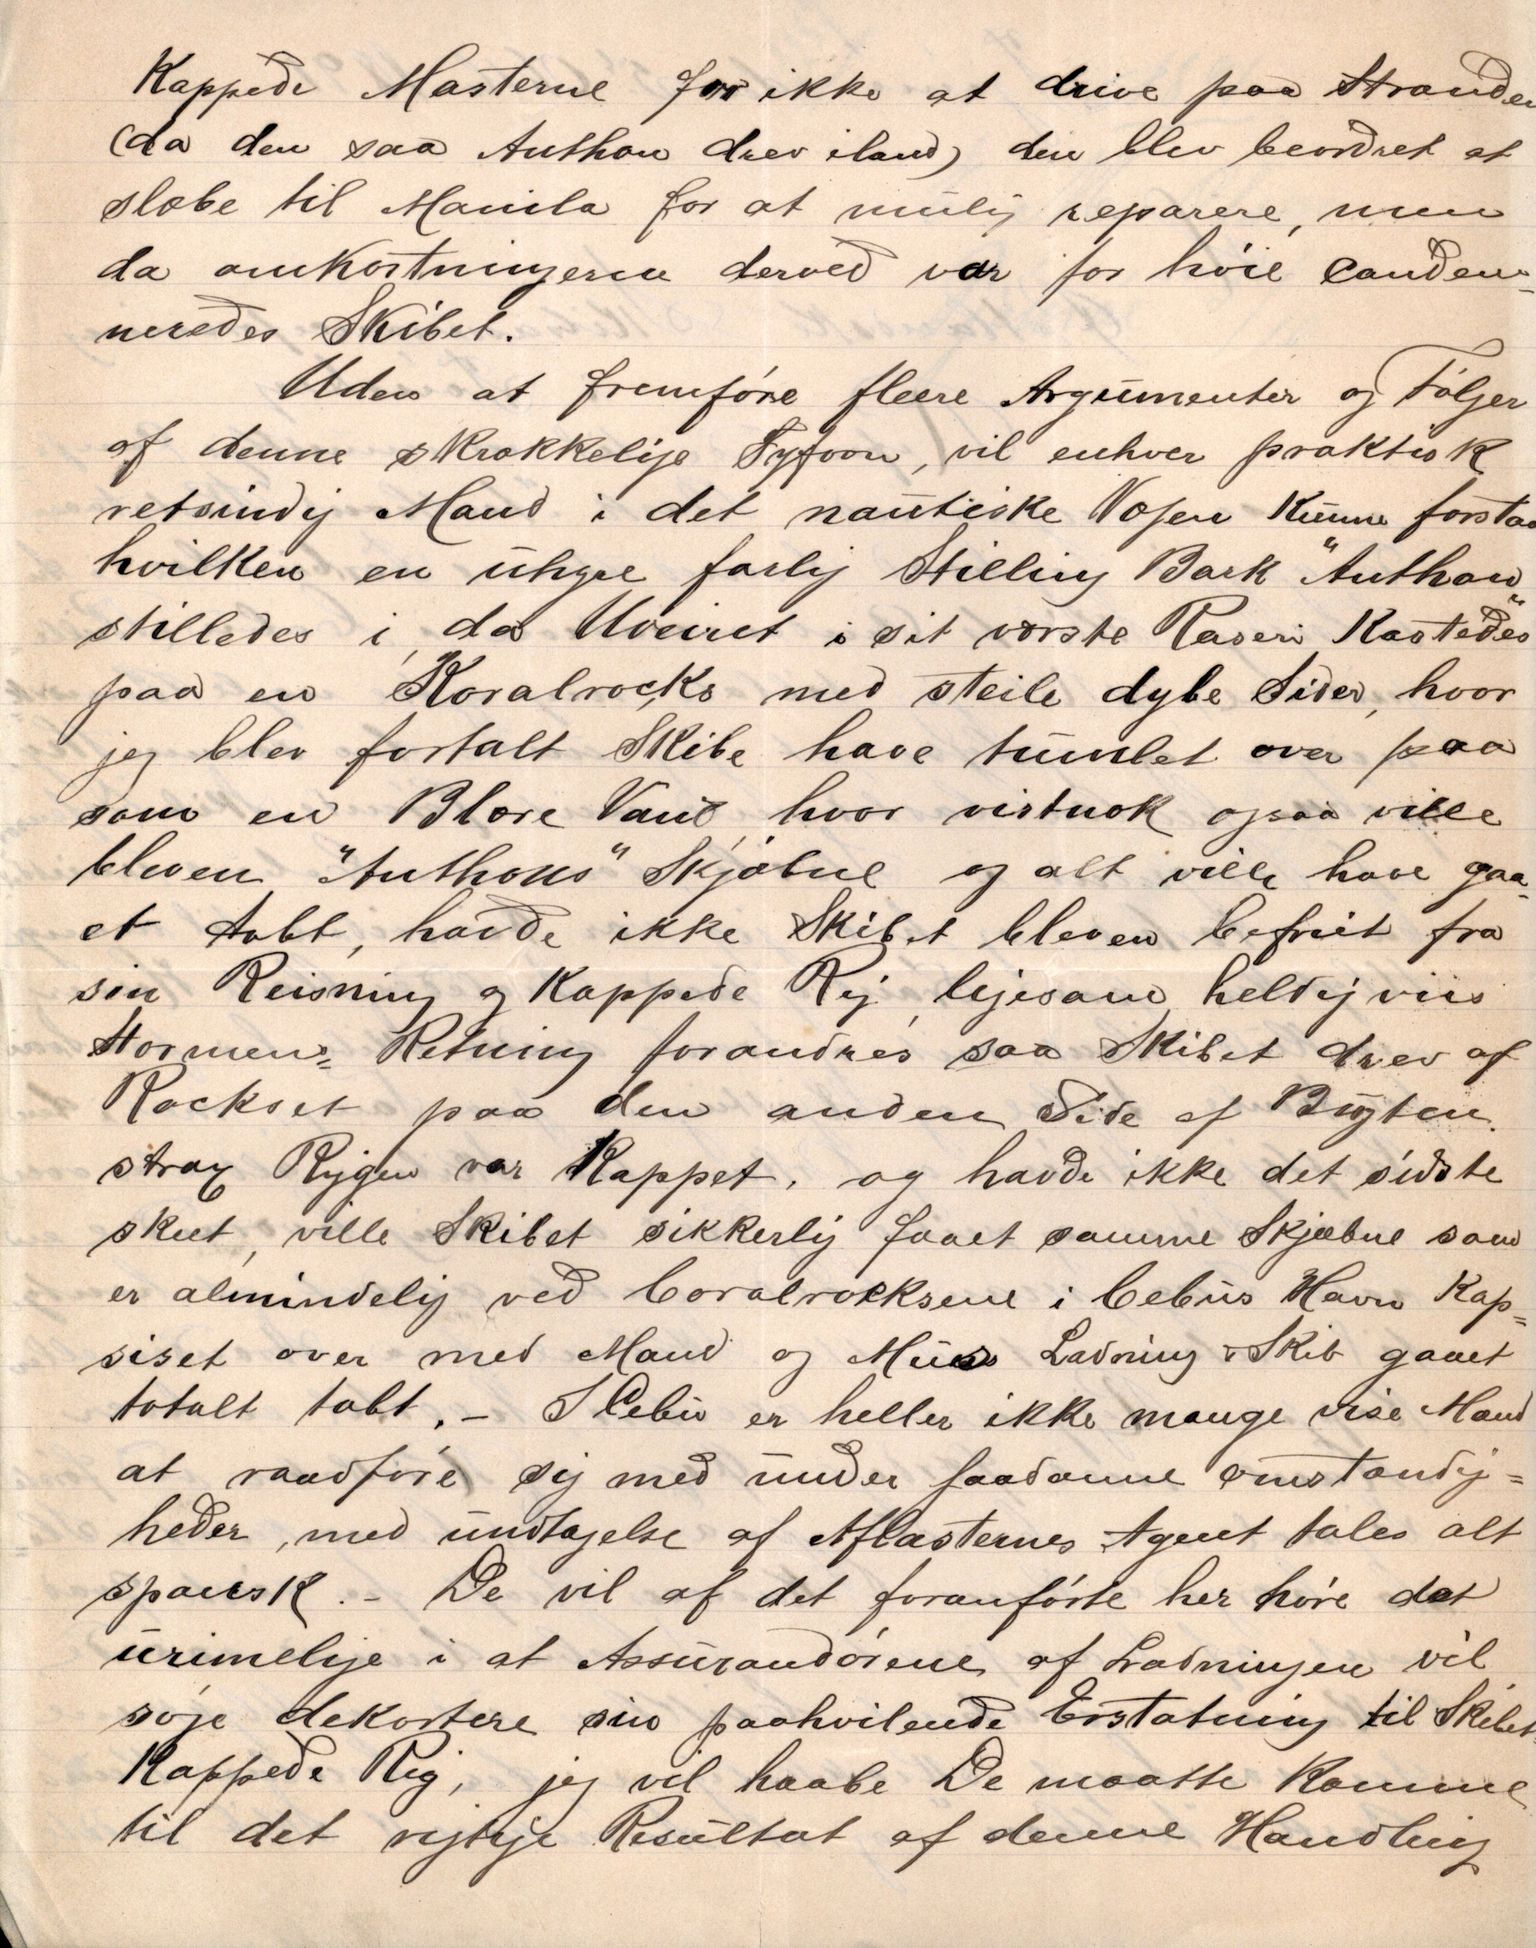 Kappede Masterne for ikke at drive paa Stranden
(da den saa Anthon drev iland) den blev beordret at
slæbe til Manila for at mulig reparere, men
da omkostningerne derved var for höie Conden=
neredes Skibet.
Uden at fremföre flere Argumenter og Fölger
af denne skrækkelige Tyfoon, vil enhver praktisk
retsindig Mand i det nautiske Væsen kunne forstaa
hvilken en uhyre farlig Stilling Bark "Anthon"
stilledes i, da Uveiret i sit værste Raseri Kastedes
paa en Koralrocks med steile dybe Sider, hvor
jeg blev fortalt Skibe have tumlet over paa
som en Blære Vand, hvor vistnok ogsaa ville
bleven "Anthons" Skjæbne og alt ville have gaa=
et tabt, havde ikke Skibet bleven befriet fra
sin Reisning og Kappede Rig, ligesom heldigviis
Stormens Retning forandres saa Skibet drev af
Rockset paa den anden Side af Bugten
strax Riggen var Kappet, og havde ikke det sidste
skeet, ville Skibet sikkerlig faaet samme Skjæbne som
er almindelig ved Coralrocksene i Cebus Havn Kap=
siset over med Mand og Muus Ladning & Skib gaaet
totalt tabt. – I Cebu er heller ikke mange vise Mænd
at raadföre sig med under saadanne omstændig=
heder, med undtagelse af Aflasternes Agent tales alt
spansk. – De vil af det foranförte her höre det
urimelige i at Assurandörene af Ladningen vil
söge dekortere sin paahvilende Erstatning til Skibets
Kappede Rig, jeg vil haabe De maatte Komme
til det rigtige Resultat af denne Handling